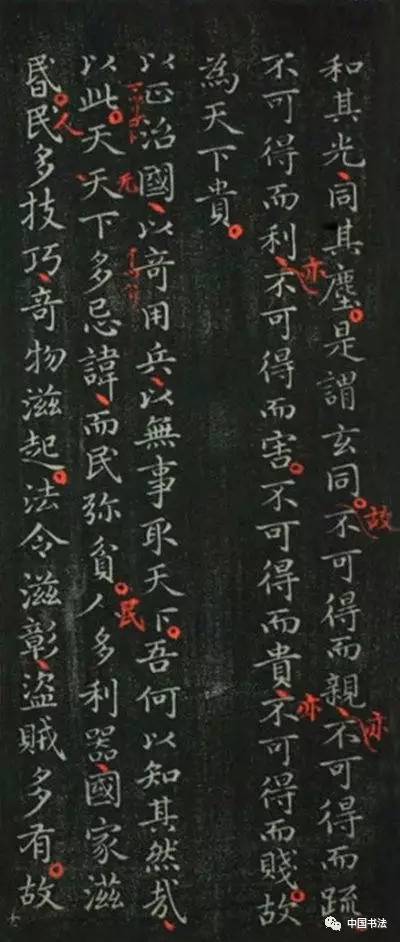 和其光、同其塵。是謂玄同。不可得而親、不可得而踈
故
亦
不可得而利、不可得而害。不可得而貴、不可得而賤。故
亦
亦
為天下貴。
以正治國、以竒用兵、以無事取天下。吾何以知其然哉、
以此。天、天下多忌諱、而民弥貧。人多利器、國家滋
无
民
昬。民多技巧、竒物滋起。法令滋彰、盜賊多有。故
人
中国书法